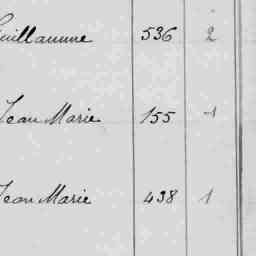 Guillaume 536 2
Jean Marie 155 1
Jean Marie 438 1